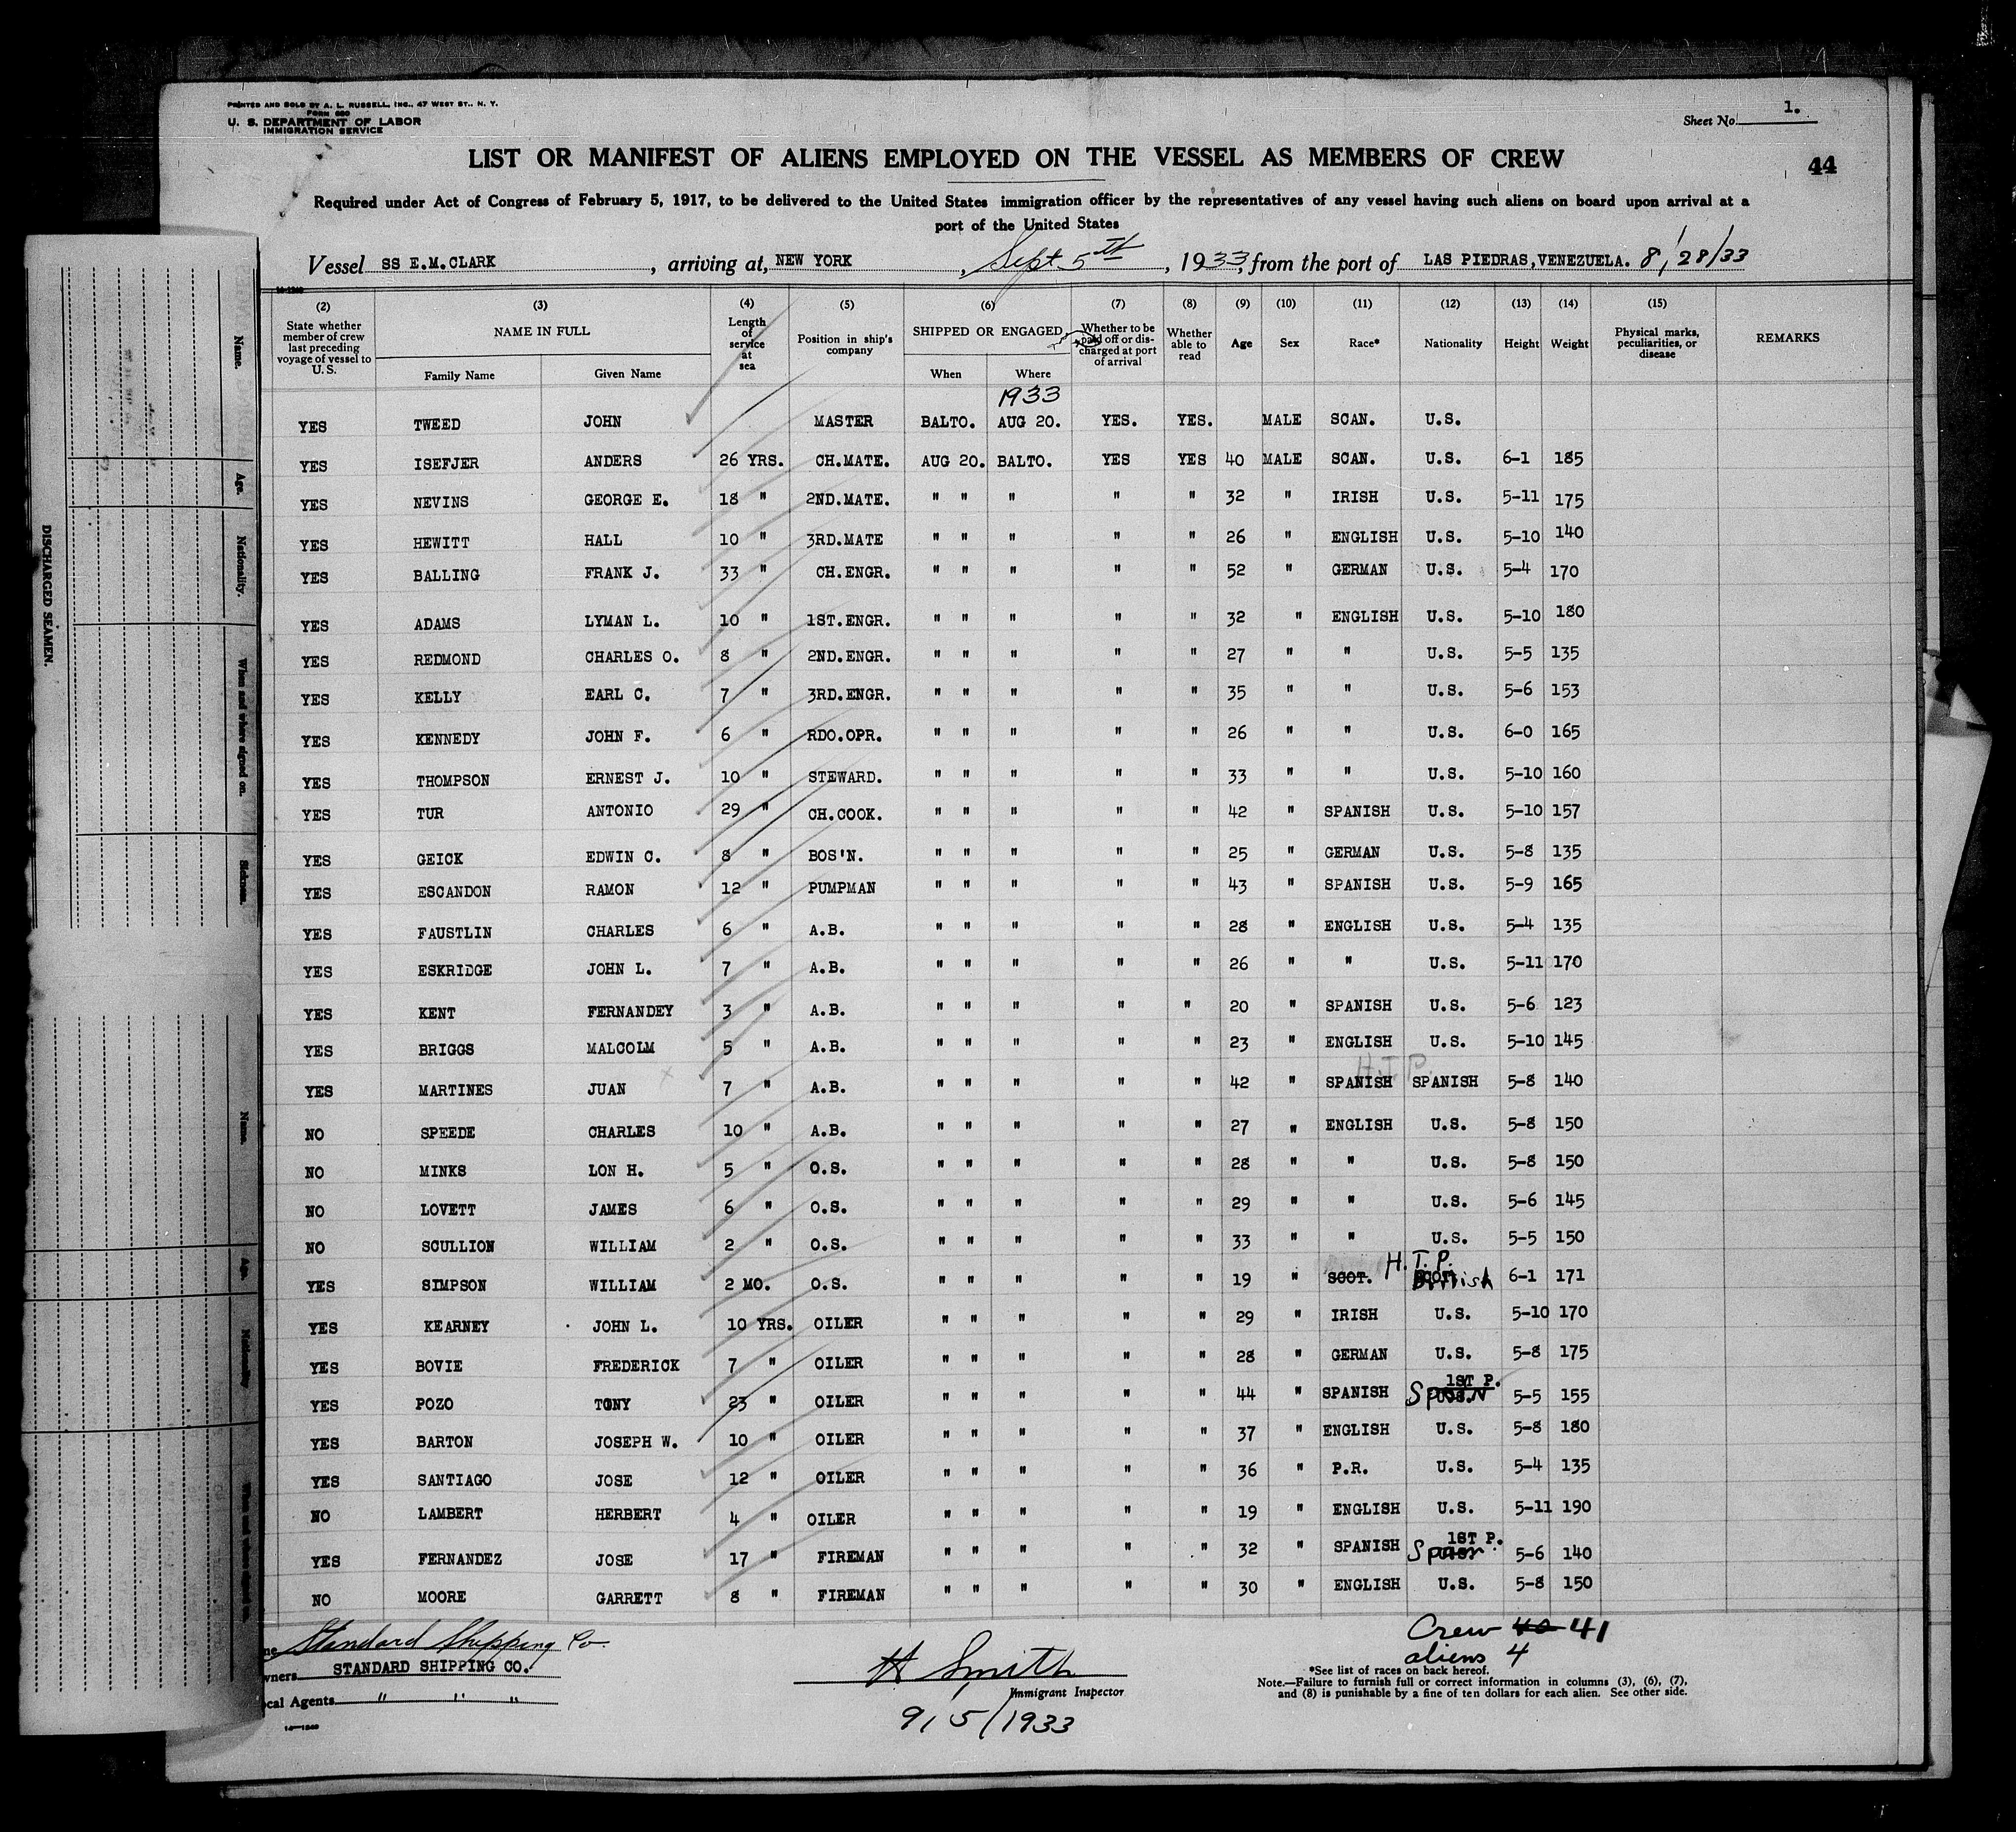 PRINTED AND SOLD BY A. L. RUSSELL, INC., 47 WEST ST., N. Y.
FORM 680
U. S. DEPARTMENT OF LABOR
IMMIGRATION SERVICE
Sheet No. 1.
LIST OR MANIFEST OF ALIENS EMPLOYED ON THE VESSEL AS MEMBERS OF CREW
44
Required under Act of Congress of February 5, 1917, to be delivered to the United States immigration officer by the representatives of any vessel having such aliens on board upon arrival at a
port of the United States
Vessel SS E.M.CLARK , arriving at, NEW YORK , Sept 5th , 1933, from the port of LAS PIEDRAS, VENEZUELA. 8/28/33
(2) (3) (4) (5) (6) (7) (8) (9) (10) (11) (12) (13) (14) (15)
State whether member of crew last preceding voyage of vessel to U. S. NAME IN FULL Family Name Given Name Length of service at sea Position in ship's company SHIPPED OR ENGAGED When Where Whether to be paid off or discharged at port of arrival Whether able to read Age Sex Race* Nationality Height Weight Physical marks, peculiarities, or disease REMARKS
1933
YES TWEED JOHN MASTER BALTO. AUG 20. YES. YES. MALE SCAN. U.S.
YES ISEFJER ANDERS 26 YRS. CH.MATE. AUG 20. BALTO. YES YES 40 MALE SCAN. U.S. 6-1 185
YES NEVINS GEORGE E. 18 " 2ND.MATE. " " " " " 32 " IRISH U.S. 5-11 175
YES HEWITT HALL 10 " 3RD.MATE " " " " " 26 " ENGLISH U.S. 5-10 140
YES BALLING FRANK J. 33 " CH.ENGR. " " " " " 52 " GERMAN U.S. 5-4 170
YES ADAMS LYMAN L. 10 " 1ST.ENGR. " " " " " 32 " ENGLISH U.S. 5-10 180
YES REDMOND CHARLES O. 8 " 2ND.ENGR. " " " " " 27 " " U.S. 5-5 135
YES KELLY EARL C. 7 " 3RD.ENGR. " " " " " 35 " " U.S. 5-6 153
YES KENNEDY JOHN F. 6 " RDO.OPR. " " " " " 26 " " U.S. 6-0 165
YES THOMPSON ERNEST J. 10 " STEWARD. " " " " " 33 " " U.S. 5-10 160
YES TUR ANTONIO 29 " CH.COOK. " " " " " 42 " SPANISH U.S. 5-10 157
YES GEICK EDWIN C. 8 " BOS'N. " " " " " 25 " GERMAN U.S. 5-8 135
YES ESCANDON RAMON 12 " PUMPMAN " " " " " 43 " SPANISH U.S. 5-9 165
YES FAUSTLIN CHARLES 6 " A.B. " " " " " 28 " ENGLISH U.S. 5-4 135
YES ESKRIDGE JOHN L. 7 " A.B. " " " " " 26 " " U.S. 5-11 170
YES KENT FERNANDEY 3 " A.B. " " " " " 20 " SPANISH U.S. 5-6 123
YES BRIGGS MALCOLM 5 " A.B. " " " " " 23 " ENGLISH U.S. 5-10 145
H.T.P.
YES MARTINES JUAN 7 " A.B. " " " " " 42 " SPANISH SPANISH 5-8 140
NO SPEEDE CHARLES 10 " A.B. " " " " " 27 " ENGLISH U.S. 5-8 150
NO MINKS LON H. 5 " O.S. " " " " " 28 " " U.S. 5-8 150
NO LOVETT JAMES 6 " O.S. " " " " " 29 " " U.S. 5-6 145
NO SCULLION WILLIAM 2 " O.S. " " " " " 33 " " U.S. 5-5 150
H.T.P.
YES SIMPSON WILLIAM 2 MO. O.S. " " " " " 19 " SCOT. British 6-1 171
YES KEARNEY JOHN L. 10 YRS. OILER " " " " " 29 " IRISH U.S. 5-10 170
YES BOVIE FREDERICK 7 " OILER " " " " " 28 " GERMAN U.S. 5-8 175
1ST P.
YES POZO TONY 23 " OILER " " " " " 44 " SPANISH Spain 5-5 155
YES BARTON JOSEPH W. 10 " OILER " " " " " 37 " ENGLISH U.S. 5-8 180
YES SANTIAGO JOSE 12 " OILER " " " " " 36 " P.R. U.S. 5-4 135
NO LAMBERT HERBERT 4 " OILER " " " " " 19 " ENGLISH U.S. 5-11 190
1ST P.
YES FERNANDEZ JOSE 17 " FIREMAN " " " " " 32 " SPANISH Spain 5-6 140
NO MOORE GARRETT 8 " FIREMAN " " " " " 30 " ENGLISH U.S. 5-8 150
Standard Shipping Co.
wners STANDARD SHIPPING CO.
ocal Agents " " "
H Smith
Immigrant Inspector
9/5/1933
Crew 40 41
aliens 4
*See list of races on back hereof.
Note.—Failure to furnish full or correct information in columns (3), (6), (7),
and (8) is punishable by a fine of ten dollars for each alien. See other side.
DISCHARGED SEAMEN.
Name.
Age.
Nationality.
When and where signed on.
Sickness.
Name.
Age.
Nationality
When and where signed on.